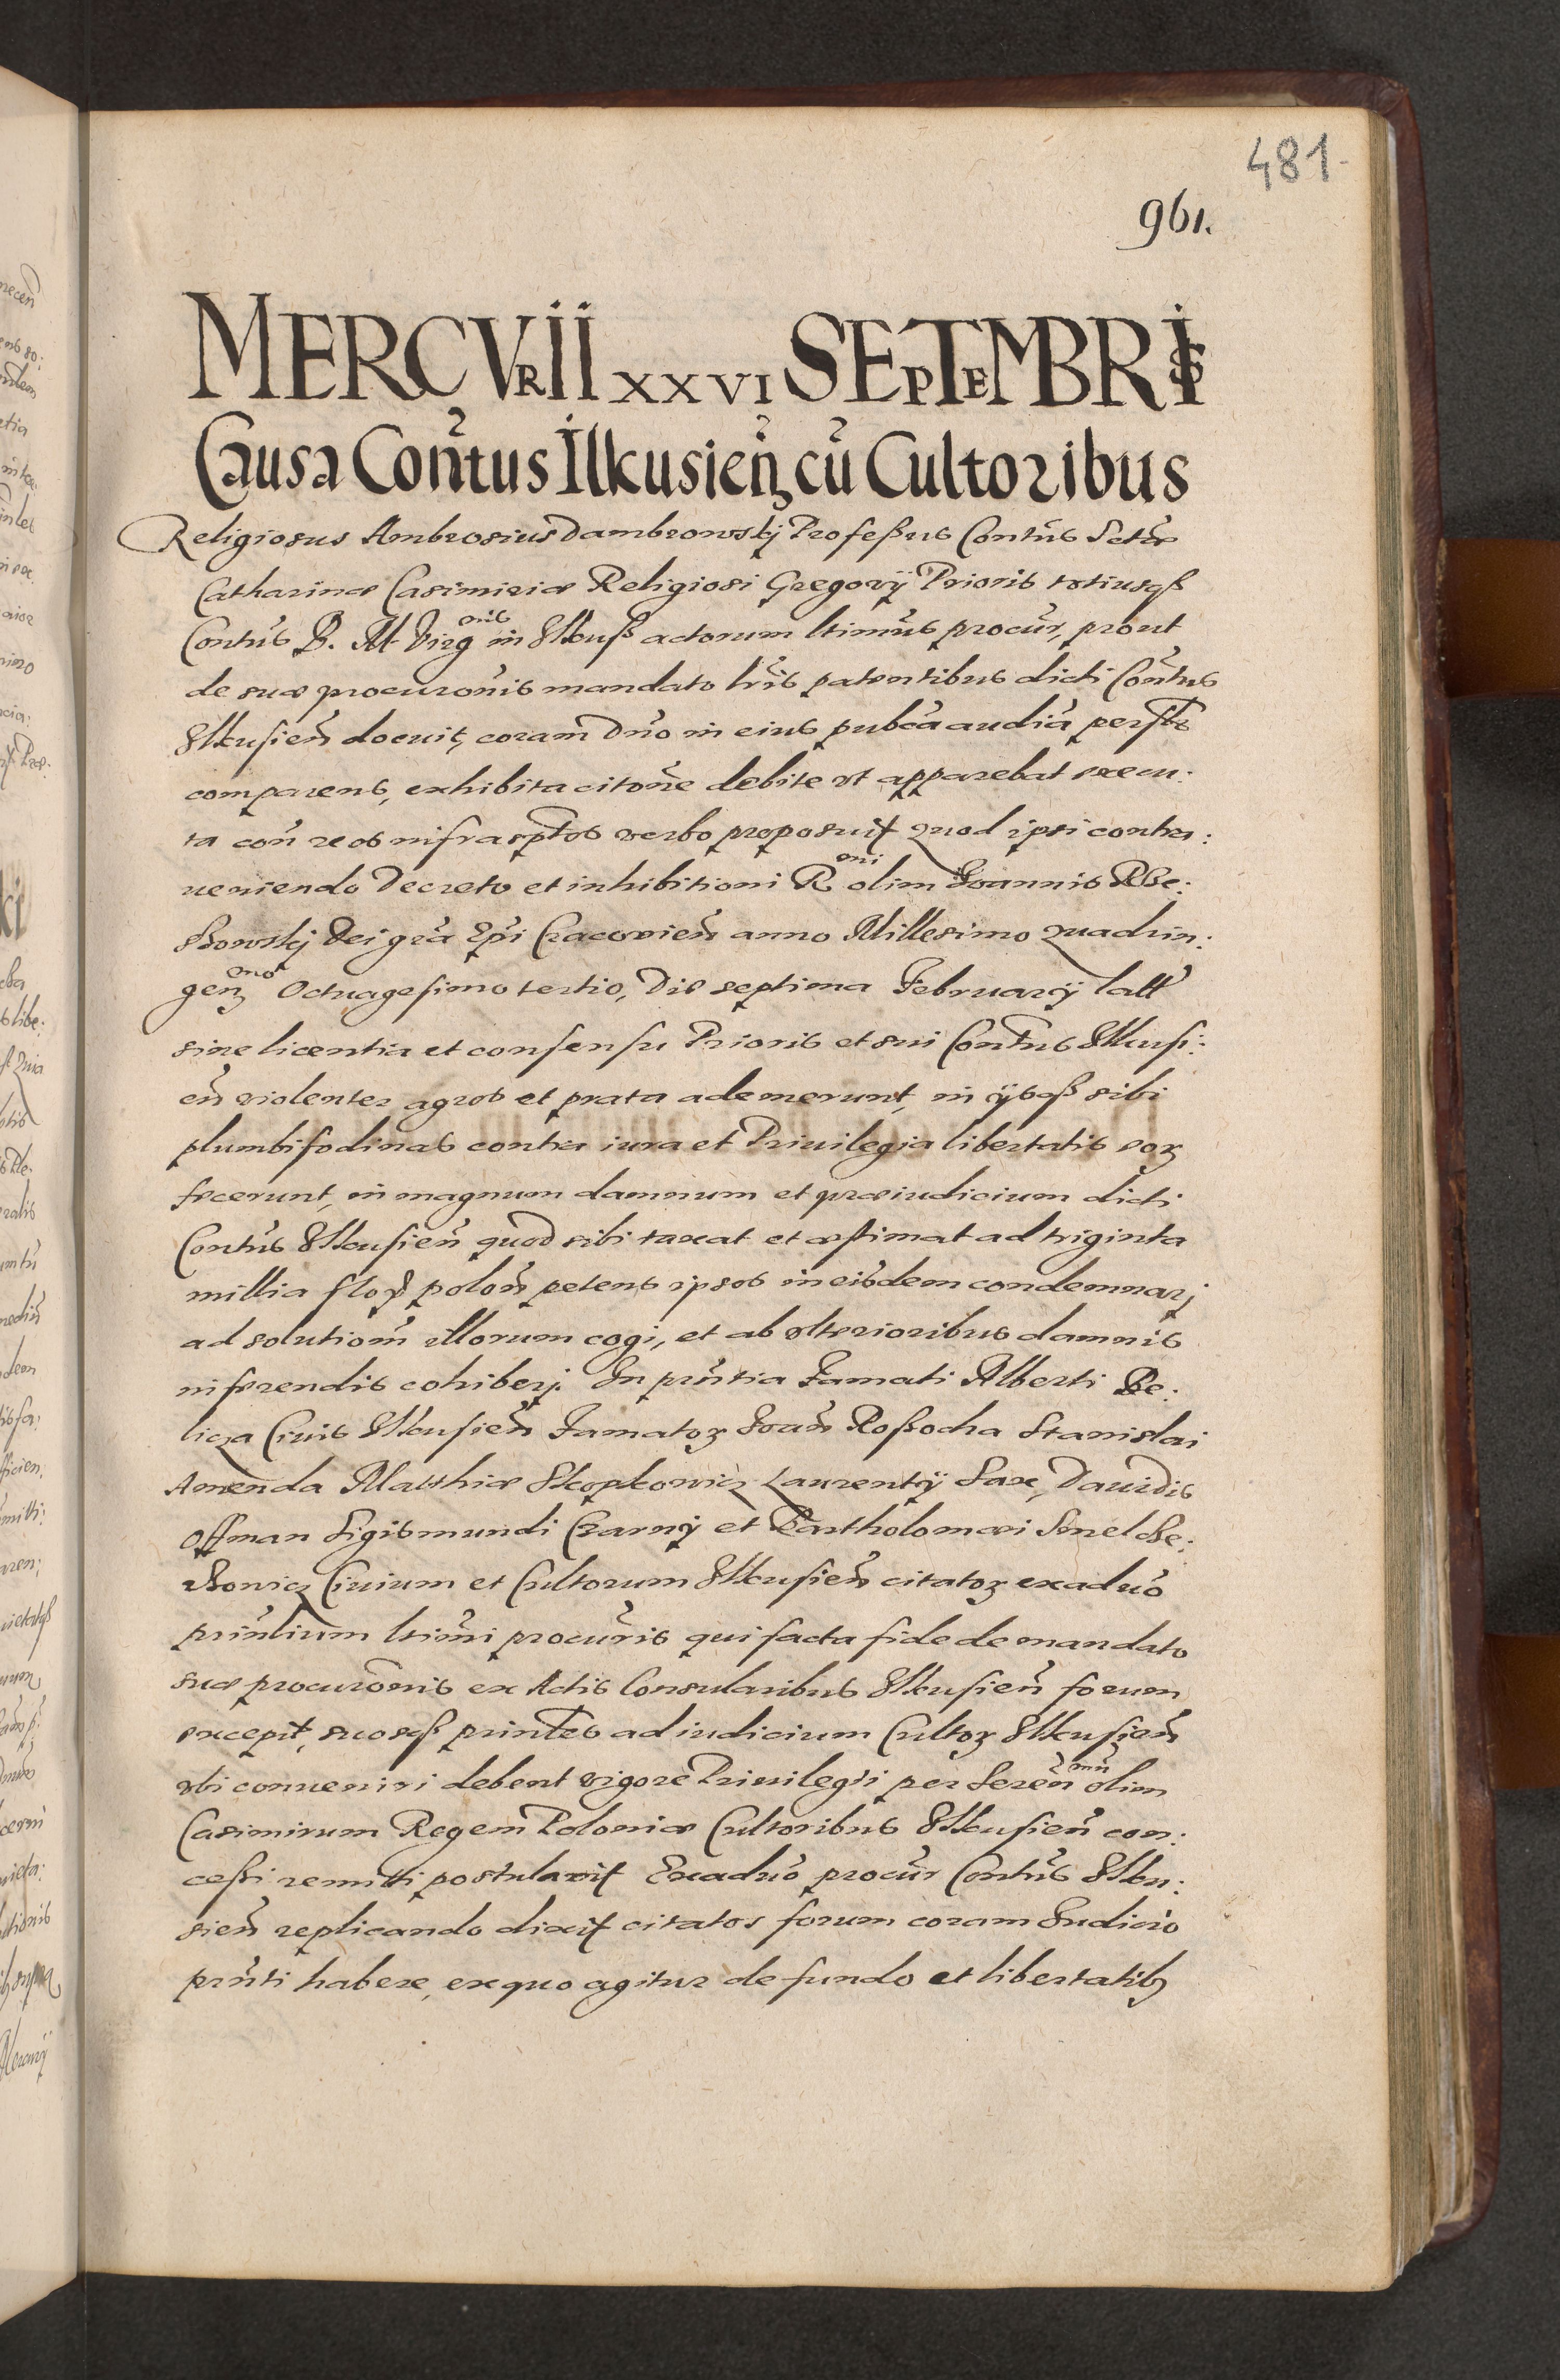 481
961.
MERCVRII XXVI SEPTEMBRIS
Causa Contus Ilkusien cu Cultoribus
Religiosus Ambrosius Dambrowskj Profeßus Contus Sctæ
Catharinæ Casimiriæ Religiosi Gregorij Prioris totiusqß
Contus B. M Virginis in Ilkuß actorum ltimus procur, prout
de suæ procuronis mandato lris patentibus dicti Contus
Ilkusien docuit, coram Dno in eius pubca audia persltr
comparens, exhibita citone debite ut apparebat execu:
ta con reos infrasptos verbo proposuit quod ipsi contra:
ueniendo Decreto et inhibitioni Rmi olim Joannis Rze:
szowskj Dei gra Epi Cracovien anno Millesimo quadrin:
genmo Octuagesimo tertio, Die septima February latt
sine licentia et consensu Prioris et sui Contus Ilkusi:
en violenter agros et prata ademerunt, in ijsqß sibi
plumbifodinas contra iura et Priuilegia libertatis eorz
fecerunt, in magnum damnum et præiudicium dicti
Contus Ilkusien quod sibi taxat et æstimat ad triginta
millia flor polon petens ipsos in eisdem condemnarj
ad solutiom illorum cogi, et ab ulterioribus damnis
inferendis cohiberj. In prntia Famati Alberti Be:
licza Ciuis Ilkusien Famatorz Joan Roßocha Stanislai
Amenda Matthiæ Skopkowicz Laurentij Sax, Dauidis
Offman Sigismundi Czarnÿ et Bartholomæi Smelcze:
rzowicz Ciuium et Cultorum Ilkusien citatorz exaduo
prinlium ltimi procuris qui facta fide de mandato
suæ procuronis ex Actis Consularibus Ilkusien forum
excepit, suosqß printes ad iudicium Cultorz Ilkusien
vbi conueniri debent vigore Priuilegii per Serenmu olim
Casimirum Regem Poloniæ Cultoribus Ilkusien con:
ceßi remitti postulavit Exaduo procur Contus Ilku:
sien replicando dixit citatos forum coram Iudicio
prnti habere, ex quo agitur de fundo et libertatibz